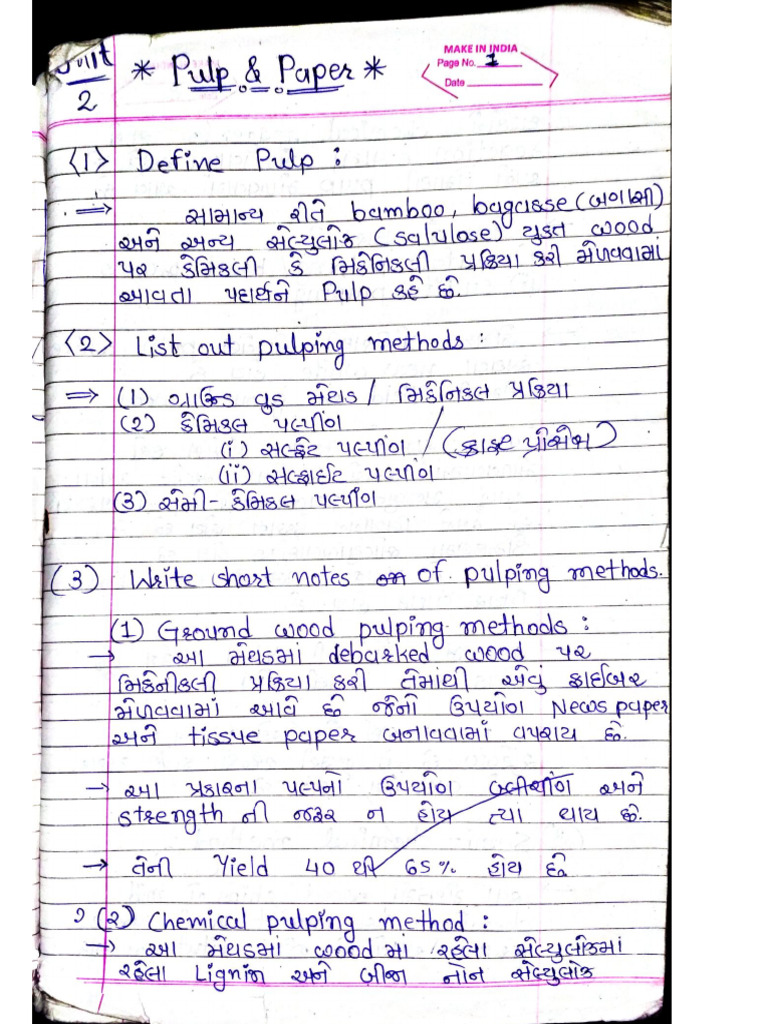 Unit
2
* Pulp & Paper *
MAKE IN INDIA
Page No. 1
Date
<1> Define Pulp :
⇒ સામાન્ય રીતે bamboo, bagasse (બગાસી)
અને અન્ય સેલ્યુલોઝ (Salulose) યુક્ત wood
પર કેમિકલી કે મિકેનિકલી પ્રક્રિયા કરી મેળવવામાં
આવતા પદાર્થને Pulp કહે છે.
<2> List out pulping methods :
⇒ (1) ગ્રાઉન્ડ વુડ મેથડ / મિકેનિકલ પ્રક્રિયા
(2) કેમિકલ પલ્પીંગ
(i) સલ્ફેટ પલ્પીંગ / (ક્રાફ્ટ પ્રોસેસ)
(ii) સલ્ફાઈટ પલ્પીંગ
(3) સેમી - કેમિકલ પલ્પીંગ
(3) Write short notes of pulping methods.
(1) Ground wood pulping methods :
→ આ મેથડમાં debarked wood પર
મિકેનીકલી પ્રક્રિયા કરી તેમાંથી એવું ફાઈબર
મેળવવામાં આવે છે જેનો ઉપયોગ News paper
અને tissue paper બનાવવામાં વપરાય છે.
→ આ પ્રકારના પલ્પનો ઉપયોગ બ્લીચીંગ અને
strength ની જરૂર ન હોય ત્યા થાય છે.
→ તેની Yield 40 થી 65% હોય છે
(2) Chemical pulping method :
→ આ મેથડમાં wood માં રહેલા સેલ્યુલોઝમાં
રહેલા Lignin અને બીજા નોન સેલ્યુલોઝ